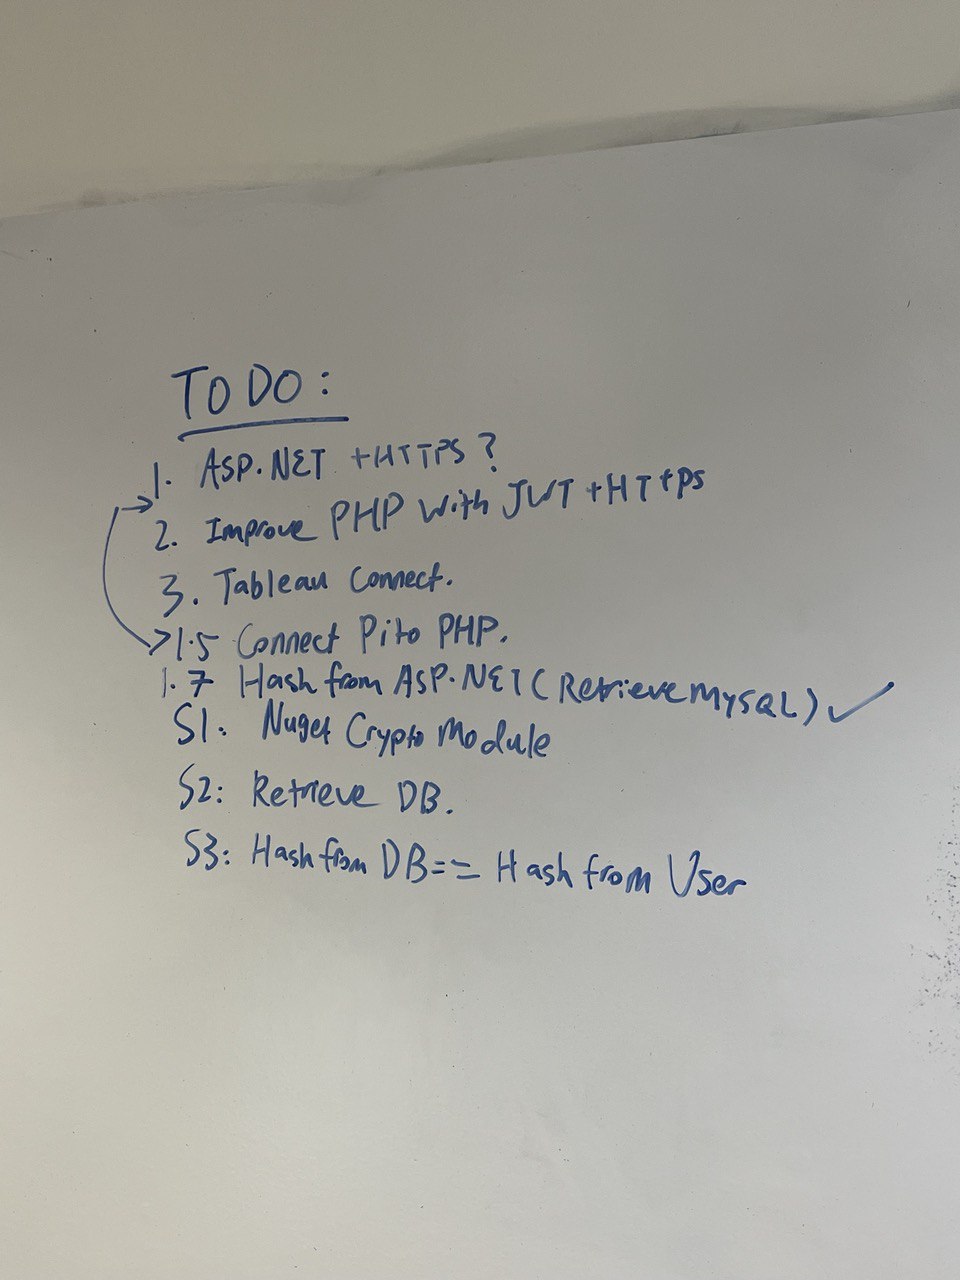 TO DO:
1. ASP.NET +HTTPS ?
2. Improve PHP with JWT +HTtps
3. Tableau Connect.
1.5 Connect Pi to PHP.
1.7 Hash from ASP.NET (Retrieve MySQL) ✓
S1: Nuget Crypto Module
S2: Retrieve DB.
S3: Hash from DB == Hash from User